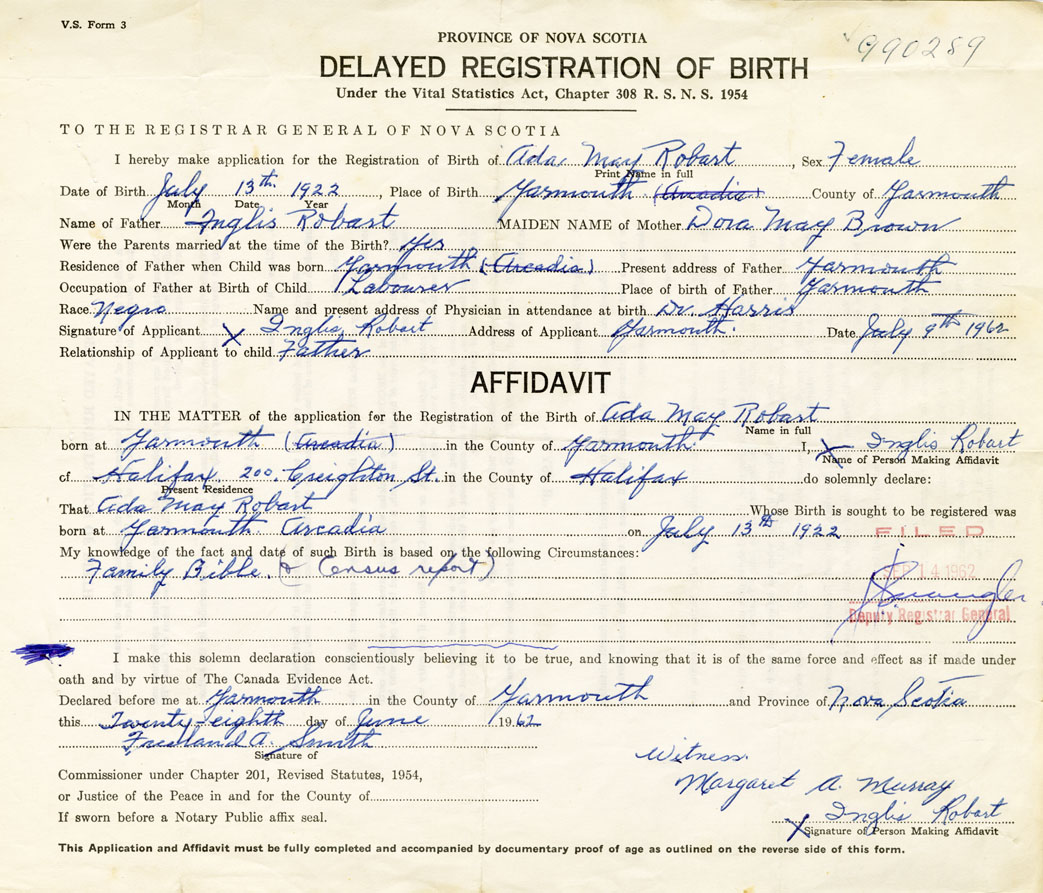 V.S. Form 3
990289
PROVINCE OF NOVA SCOTIA
DELAYED REGISTRATION OF BIRTH
Under the Vital Statistics Act, Chapter 308 R. S. N. S. 1954
TO THE REGISTRAR GENERAL OF NOVA SCOTIA
I hereby make application for the Registration of Birth of Ada May Robart, Sex Female
Print Name in full
Date of Birth July 13th. 1922, Place of Birth Yarmouth (Arcadia) County of Yarmouth
Month Date Year
Name of Father Inglis Robart MAIDEN NAME of Mother Dora May Brown
Were the Parents married at the time of the Birth? Yes
Residence of Father when Child was born Yarmouth (Arcadia) Present address of Father Yarmouth
Occupation of Father at Birth of Child Labourer Place of birth of Father Yarmouth
Race Negro Name and present address of Physician in attendance at birth Dr. Harris
Signature of Applicant X Inglis Robart Address of Applicant Yarmouth. Date July 9th 1962
Relationship of Applicant to child Father
AFFIDAVIT
IN THE MATTER of the application for the Registration of the Birth of Ada May Robart
Name in full
born at Yarmouth (Arcadia) in the County of Yarmouth I, X Inglis Robart
Name of Person Making Affidavit
of Halifax 200 Creighton St. in the County of Halifax do solemnly declare:
Present Residence
That Ada May Robart Whose Birth is sought to be registered was
born at Yarmouth Arcadia on July 13th 1922
FILED
My knowledge of the fact and date of such Birth is based on the following Circumstances:
Family Bible. (& Census report)
SEP 14 1962
Deputy Registrar General
I make this solemn declaration conscientiously believing it to be true, and knowing that it is of the same force and effect as if made under
oath and by virtue of The Canada Evidence Act.
Declared before me at Yarmouth in the County of Yarmouth and Province of Nova Scotia
this Twenty-eighth day of June 1962
Freeland A. Smith
Signature of
Commissioner under Chapter 201, Revised Statutes, 1954,
or Justice of the Peace in and for the County of
If sworn before a Notary Public affix seal.
Witness.
Margaret A. Murray
X Inglis Robart
Signature of Person Making Affidavit
This Application and Affidavit must be fully completed and accompanied by documentary proof of age as outlined on the reverse side of this form.